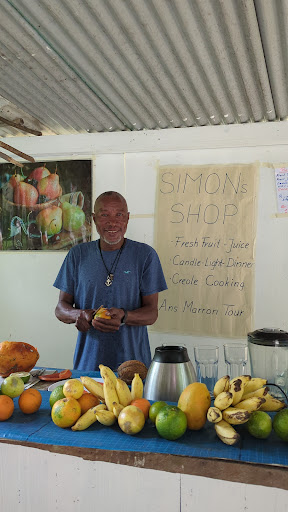 SIMONs
SHOP
-Fresh Fruit-Juice
-Candle Light-Dinner
-Creole Cooking
Ans Marron Tour